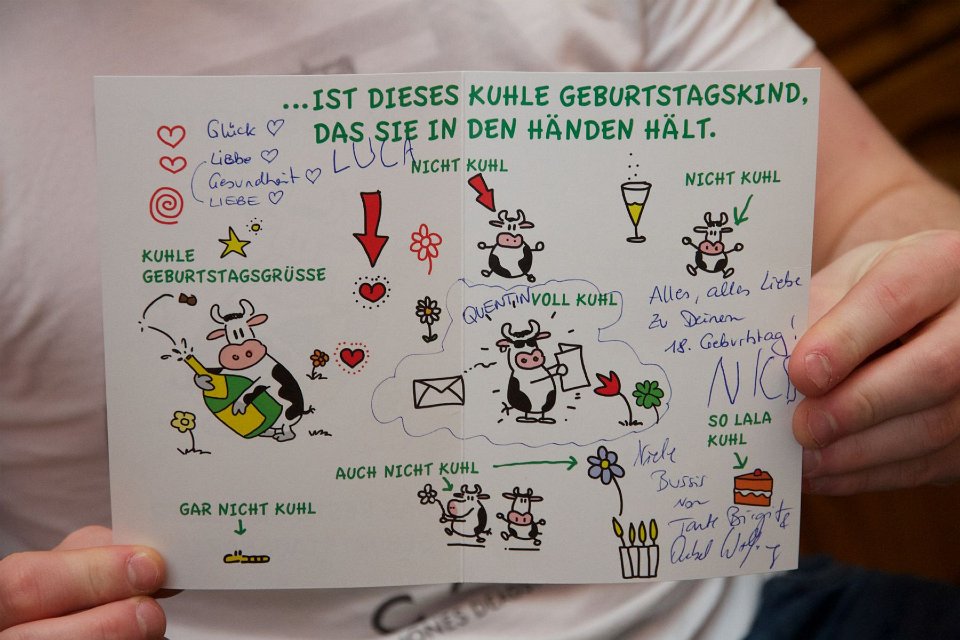 ...IST DIESES KUHLE GEBURTSTAGSKIND,
DAS SIE IN DEN HÄNDEN HÄLT.
Glück ♡
Liebe ♡
Gesundheit ♡
LIEBE ♡
LUCA
NICHT KUHL
NICHT KUHL
KUHLE
GEBURTSTAGSGRÜSSE
QUENTIN
VOLL KUHL
Alles, alles Liebe
zu Deinem
18. Geburtstag!
NICO
SO LALA
KUHL
AUCH NICHT KUHL
GAR NICHT KUHL
Viele
Bussis
von
Tante Birgit &
Onkel